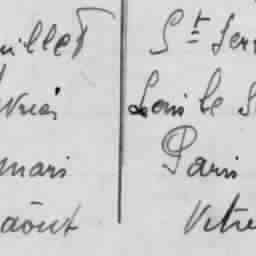 uillet St Ser
vrier Lons le S
mars Paris
août Vitre